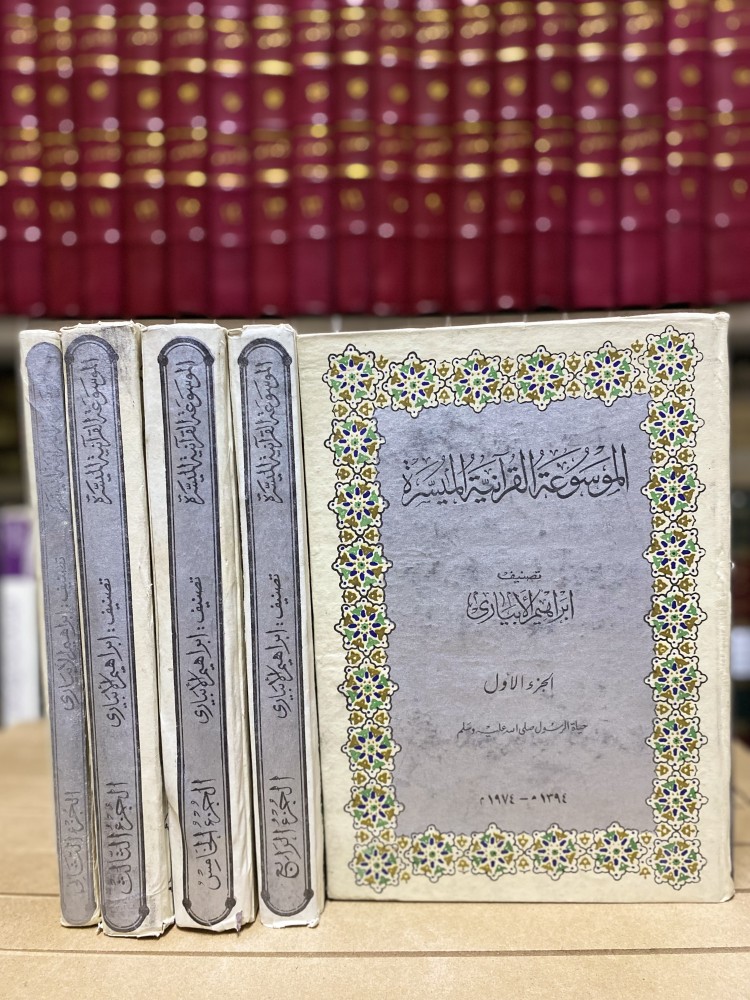 الموسوعة القرآنية الميسرة
تصنيف
ابراهيم الأبيارى
الجزء الأول
حياة الرسول صلى الله عليه وسلم
١٣٩٤ هـ – ١٩٧٤ م
الموسوعة القرآنية الميسرة
تصنيف : ابراهيم الأبيارى
الجزء الرابع
الموسوعة القرآنية الميسرة
تصنيف : ابراهيم الأبيارى
الجزء الخامس
الموسوعة القرآنية الميسرة
تصنيف : ابراهيم الأبيارى
الجزء الثالث
الموسوعة القرآنية الميسرة
تصنيف : ابراهيم الأبيارى
الجزء الثانى